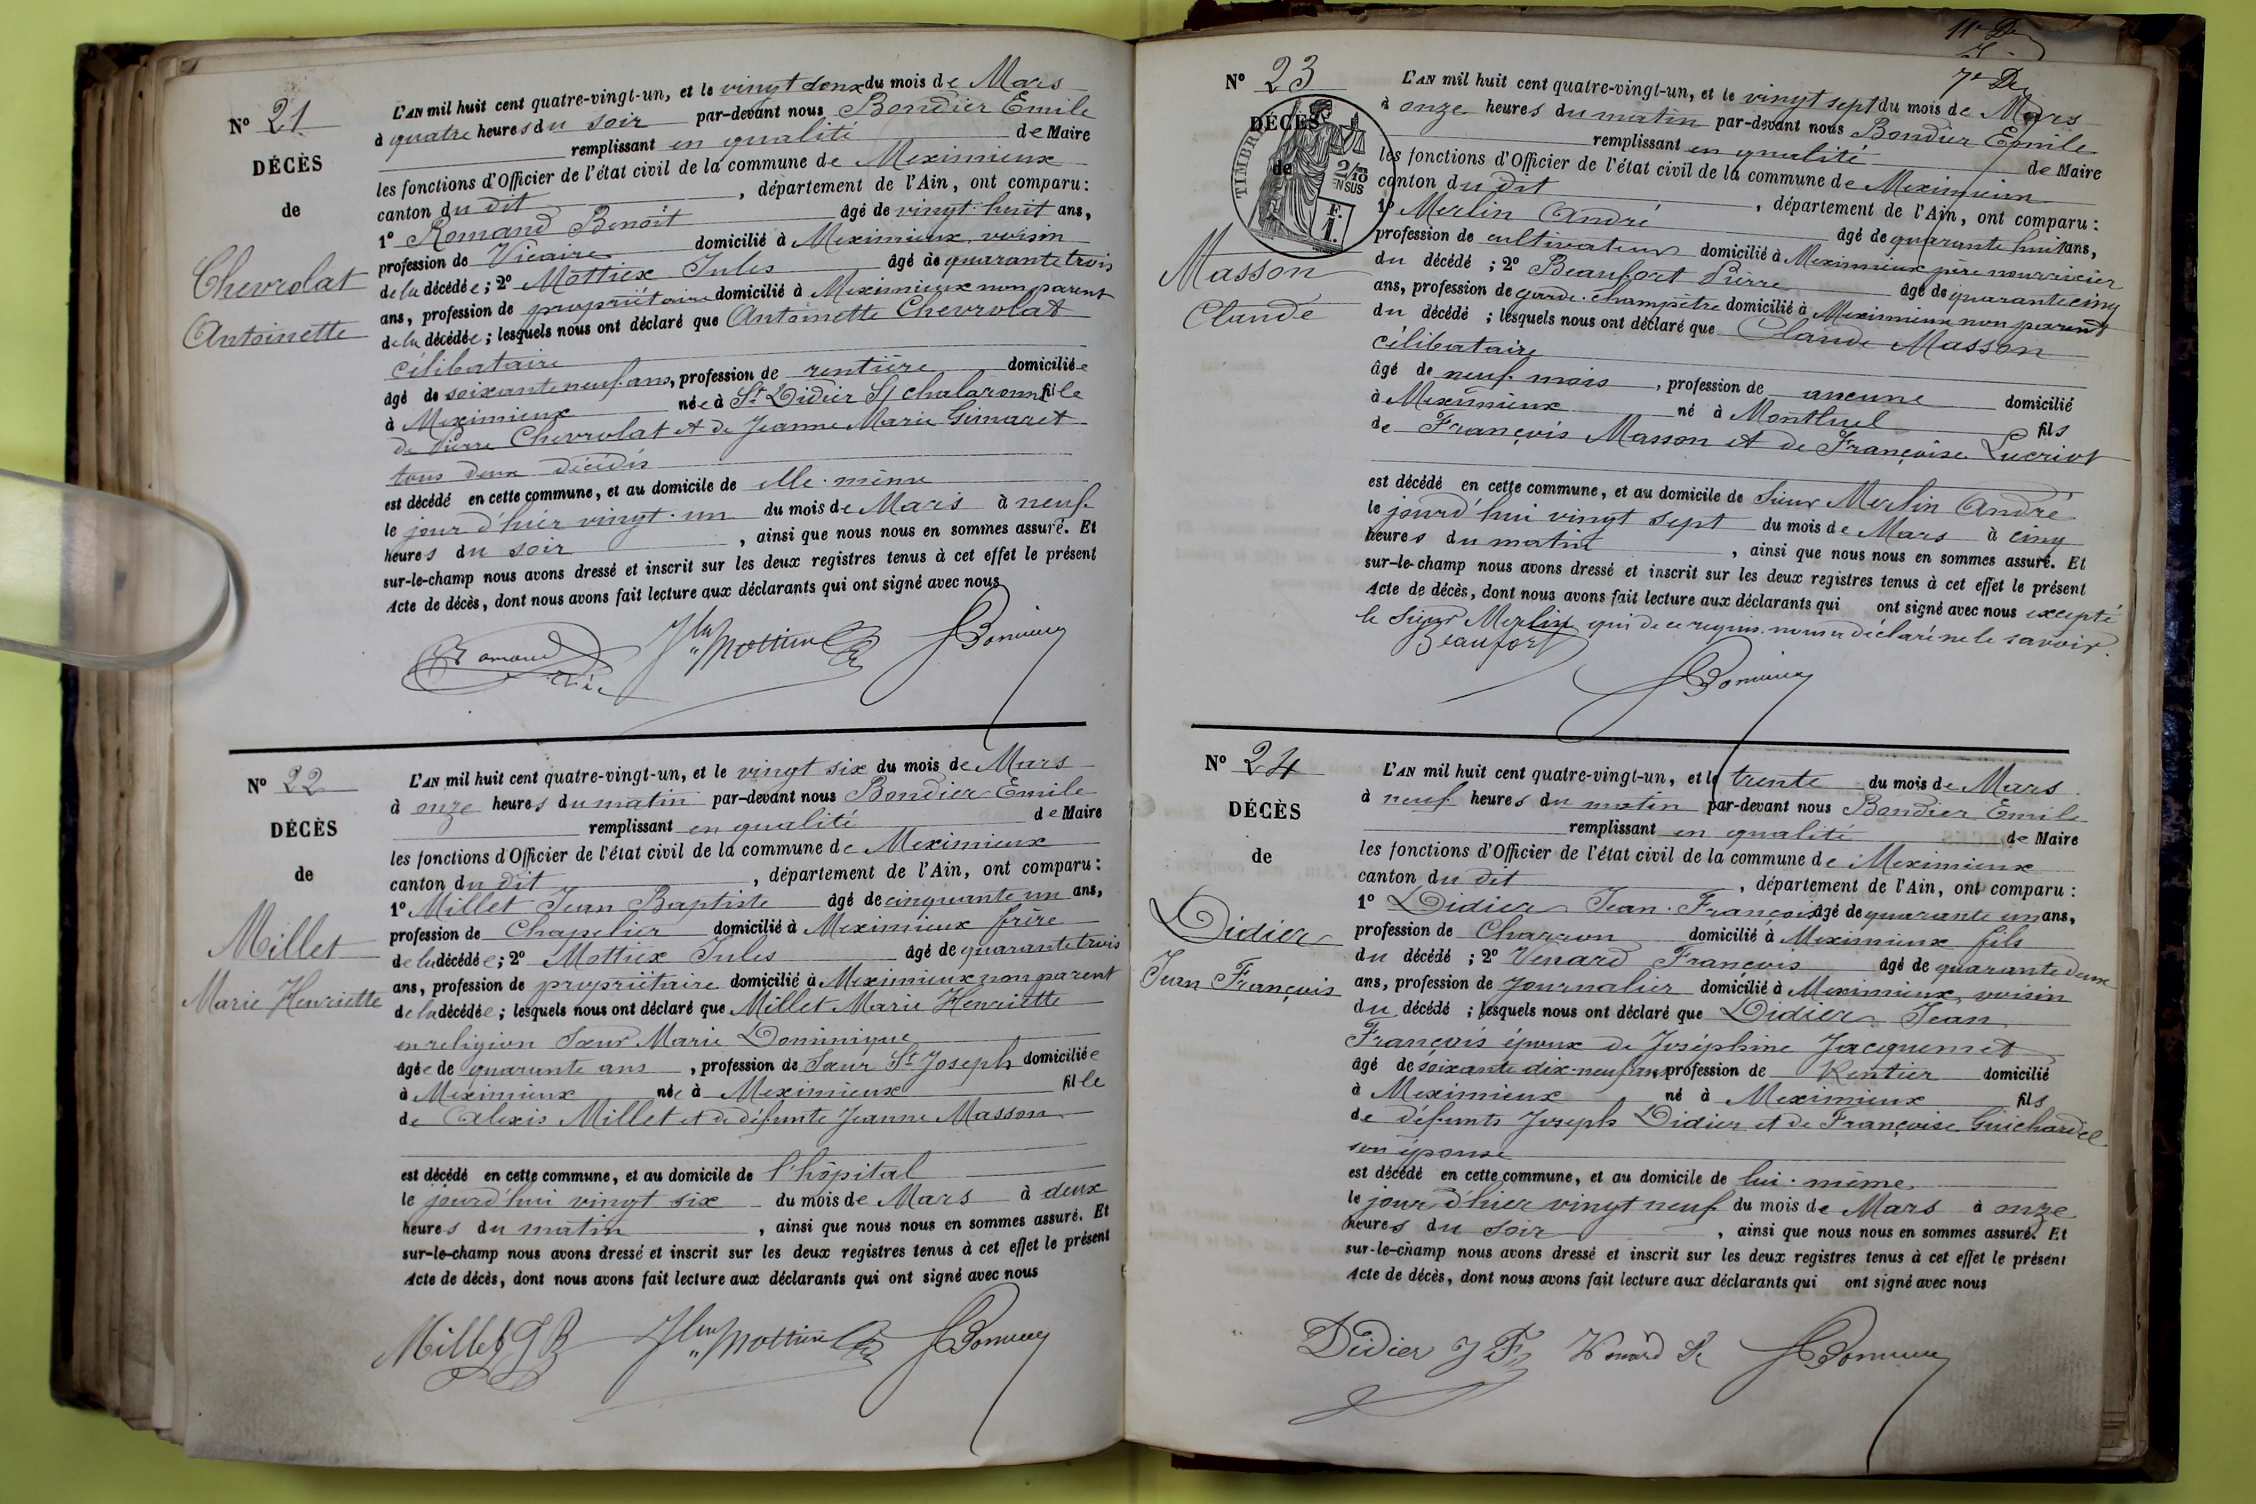 N° 21
DÉCÈS
de
Chevrolat
Antoinette
L'AN mil huit cent quatre-vingt-un, et le vingt deux du mois de Mars
à quatre heures du soir par-devant nous Bondier Emile
remplissant en qualité de Maire
les fonctions d'Officier de l'état civil de la commune de Meximieux
canton du dit, département de l'Ain, ont comparu:
1° Romand Benoît âgé de vingt-huit ans,
profession de Vicaire domicilié à Meximieux voisin
de la décédée; 2° Mottiex Jules âgé de quarante trois
ans, profession de propriétaire domicilié à Meximieux non parent
de la décédée; lesquels nous ont déclaré que Antoinette Chevrolat
célibataire
âgé de soixante neuf ans, profession de rentière domiciliée
à Meximieux née à St Didier S/ Chalaronne fille
de Pierre Chevrolat et de Jeanne Marie Gimaret
tous deux décédés
est décédé en cette commune, et au domicile de elle-même
le jour d'hier vingt-un du mois de Mars à neuf
heures du soir, ainsi que nous nous en sommes assuré. Et
sur-le-champ nous avons dressé et inscrit sur les deux registres tenus à cet effet le présent
Acte de décès, dont nous avons fait lecture aux déclarants qui ont signé avec nous
Romand Vic.
N° 22
DÉCÈS
de
Millet
Marie Henriette
L'AN mil huit cent quatre-vingt-un, et le vingt six du mois de Mars
à onze heures du matin par-devant nous Bondier Emile
remplissant en qualité de Maire
les fonctions d'Officier de l'état civil de la commune de Meximieux
canton du dit, département de l'Ain, ont comparu:
1° Millet Jean Baptiste âgé de cinquante un ans,
profession de Chapelier domicilié à Meximieux frère
de la décédée; 2° Mottiex Jules âgé de quarante trois
ans, profession de propriétaire domicilié à Meximieux non parent
de la décédée; lesquels nous ont déclaré que Millet Marie Henriette
en religion Sœur Marie Dominique
âgée de quarante ans, profession de Sœur St Joseph domiciliée
à Meximieux née à Meximieux fille
de Alexis Millet et de défunte Jeanne Masson
est décédé en cette commune, et au domicile de l'hôpital
le jourd'hui vingt six du mois de Mars à deux
heures du matin, ainsi que nous nous en sommes assuré. Et
sur-le-champ nous avons dressé et inscrit sur les deux registres tenus à cet effet le présent
Acte de décès, dont nous avons fait lecture aux déclarants qui ont signé avec nous
Millet J B
11e De
7e De
N° 23
DÉCÈS
de
TIMBRE
2/10
EN SUS
F.
1.
Masson
Claude
L'AN mil huit cent quatre-vingt-un, et le vingt sept du mois de Mars
à onze heures du matin par-devant nous Bondier Emile
remplissant en qualité de Maire
les fonctions d'Officier de l'état civil de la commune de Meximieux
canton du dit, département de l'Ain, ont comparu:
1° Merlin André âgé de quarante huit ans,
profession de cultivateur domicilié à Meximieux père nourricier
du décédé; 2° Beaufort Pierre âgé de quarante cinq
ans, profession de garde-champêtre domicilié à Meximieux non parent
du décédé; lesquels nous ont déclaré que Claude Masson
célibataire
âgé de neuf mois, profession de aucune domicilié
à Meximieux né à Montluel fils
de François Masson et de Françoise Lucriot
est décédé en cette commune, et au domicile de Sieur Merlin André
le jourd'hui vingt sept du mois de Mars à cinq
heures du matin, ainsi que nous nous en sommes assuré. Et
sur-le-champ nous avons dressé et inscrit sur les deux registres tenus à cet effet le présent
Acte de décès, dont nous avons fait lecture aux déclarants qui ont signé avec nous excepté
le Sieur Merlin qui de ce requis nous a déclaré ne le savoir.
Beaufort
N° 24
DÉCÈS
de
Didier
Jean François
L'AN mil huit cent quatre-vingt-un, et le trente du mois de Mars
à neuf heures du matin par-devant nous Bondier Emile
remplissant en qualité de Maire
les fonctions d'Officier de l'état civil de la commune de Meximieux
canton du dit, département de l'Ain, ont comparu:
1° Didier Jean-François âgé de quarante un ans,
profession de Charron domicilié à Meximieux fils
du décédé; 2° Venard François âgé de quarante deux
ans, profession de journalier domicilié à Meximieux voisin
du décédé; lesquels nous ont déclaré que Didier Jean
François époux de Joséphine Jacquemet
âgé de soixante dix-neuf ans, profession de Rentier domicilié
à Meximieux né à Meximieux fils
de défunts Joseph Didier et de Françoise Guichardel
son épouse
est décédé en cette commune, et au domicile de lui-même
le jour d'hier vingt neuf du mois de Mars à onze
heures du soir, ainsi que nous nous en sommes assuré. Et
sur-le-champ nous avons dressé et inscrit sur les deux registres tenus à cet effet le présent
Acte de décès, dont nous avons fait lecture aux déclarants qui ont signé avec nous
Didier J F